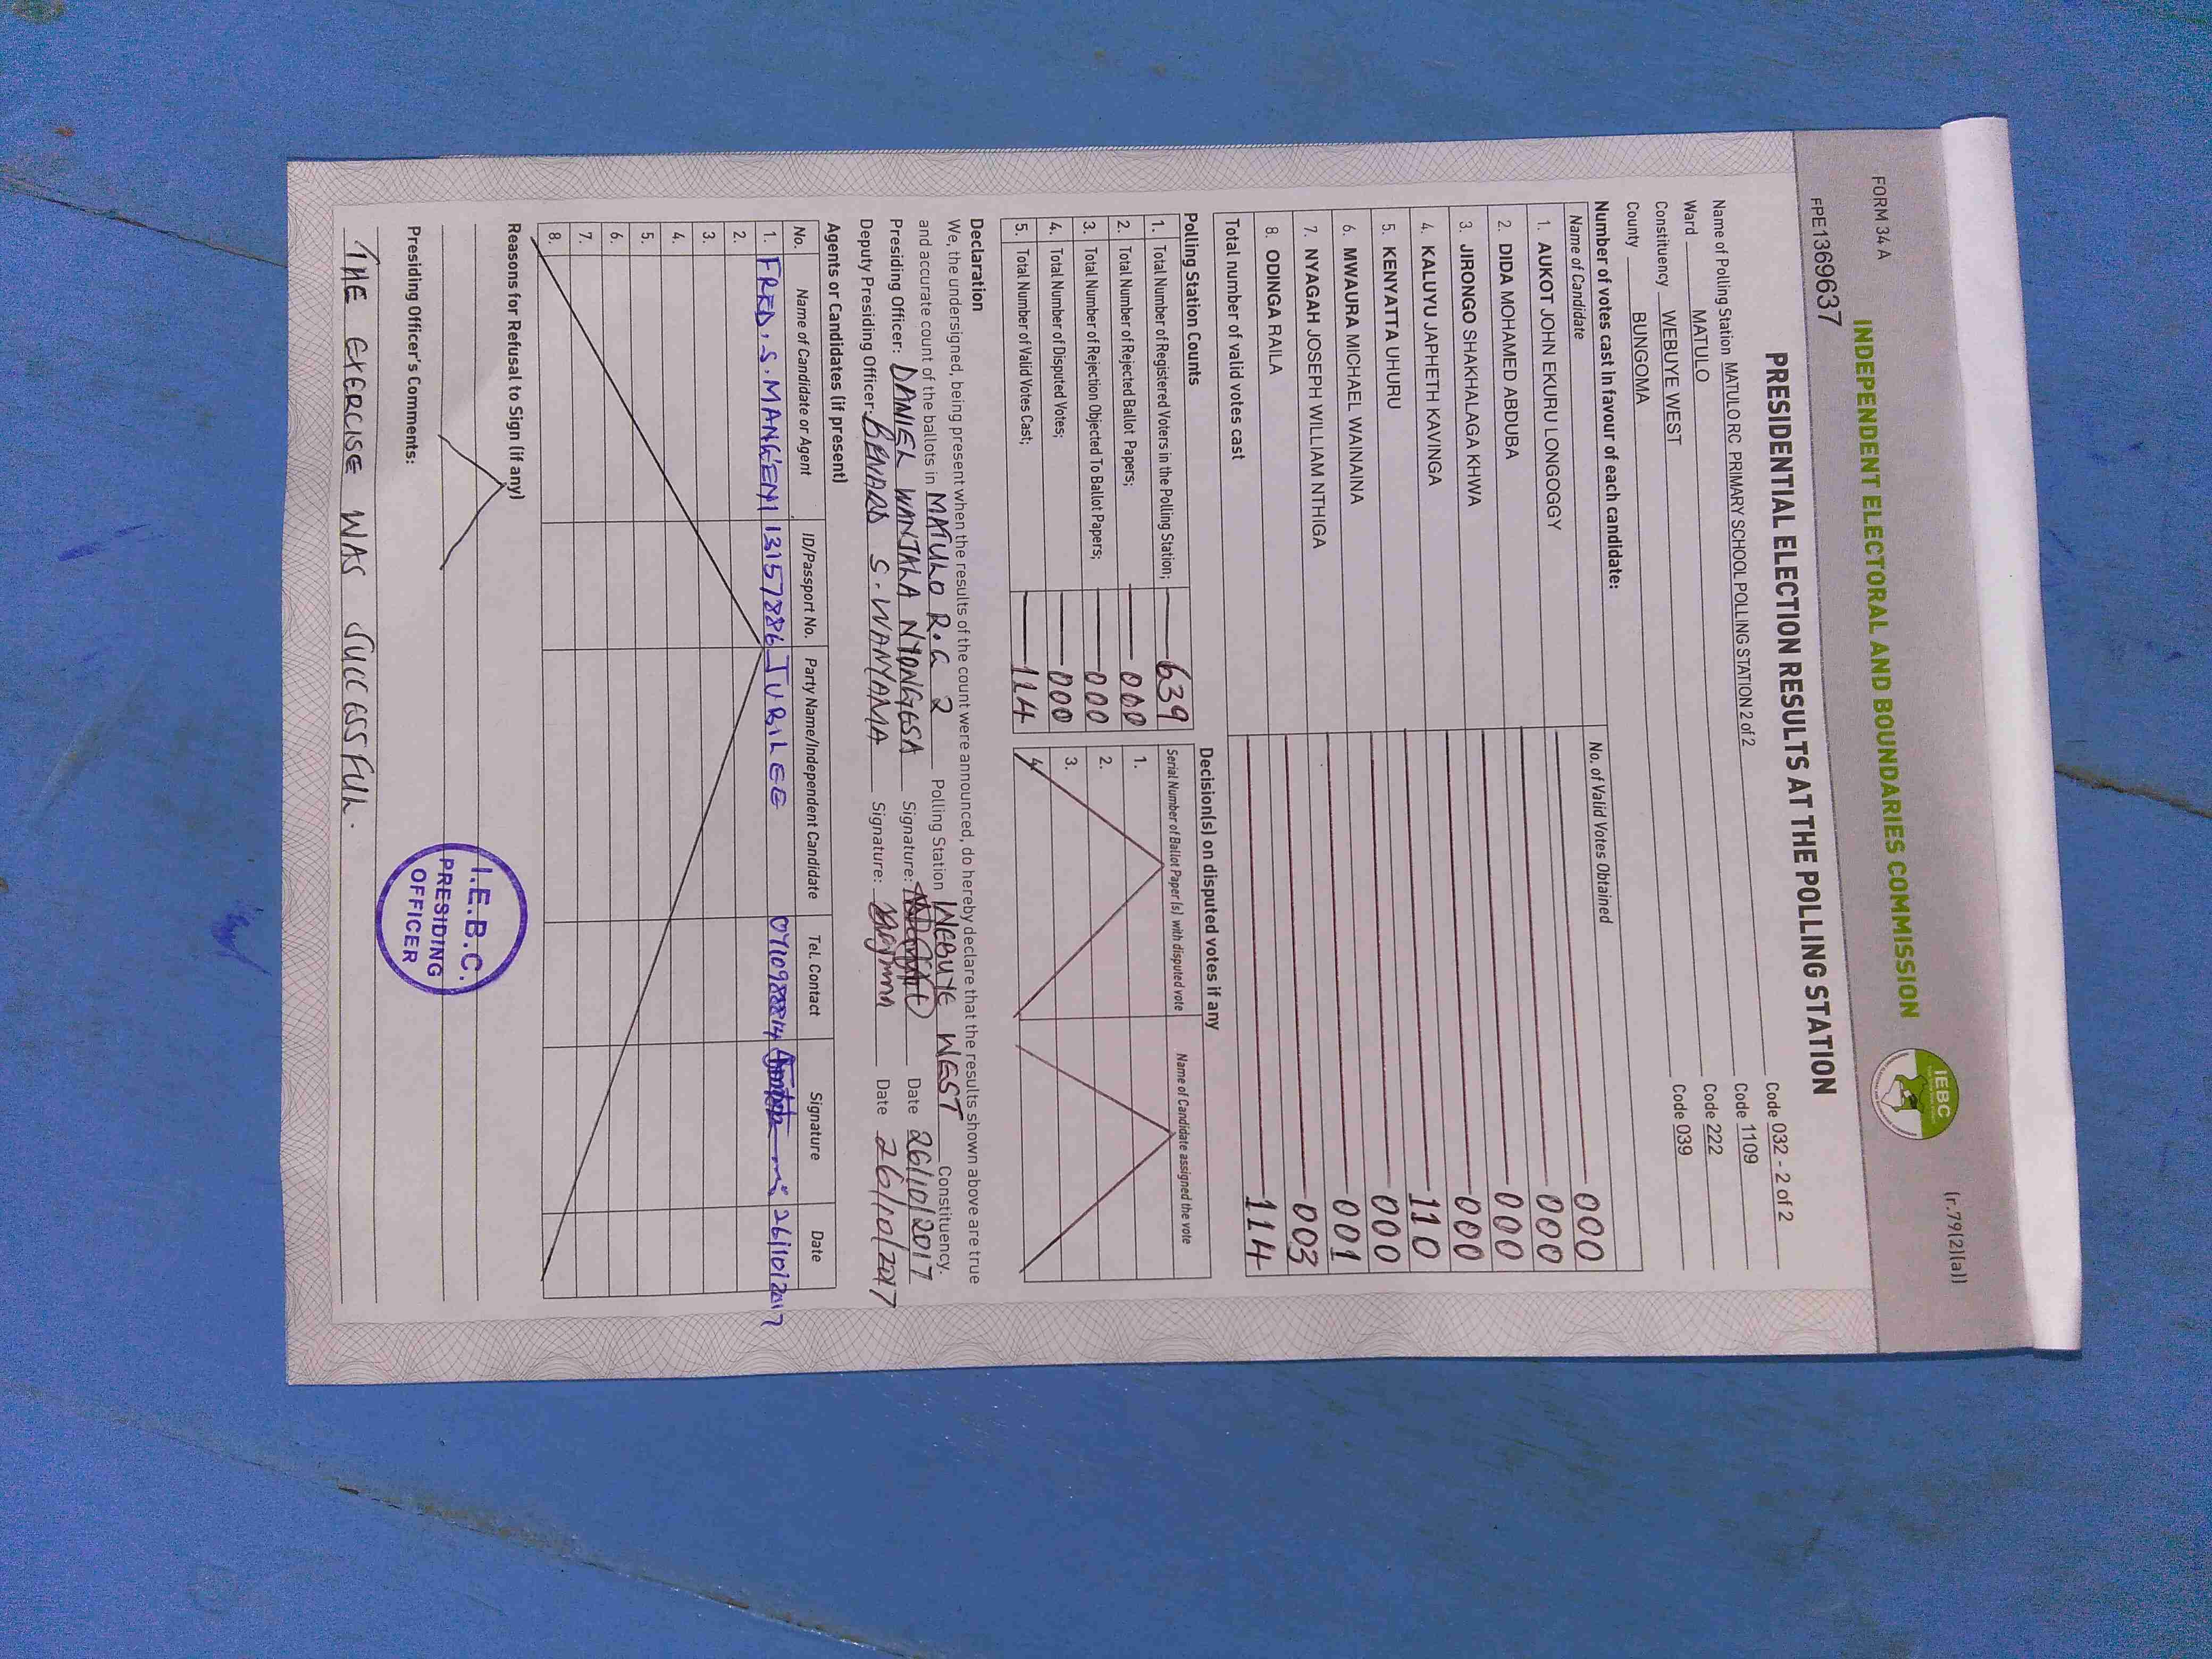 FORM 34 A
(r.79(2)(a))
INDEPENDENT ELECTORAL AND BOUNDARIES COMMISSION
IEBC
FPE1369637
PRESIDENTIAL ELECTION RESULTS AT THE POLLING STATION
Name of Polling Station MATULO RC PRIMARY SCHOOL POLLING STATION 2 of 2 Code 032 - 2 of 2
Ward MATULO Code 1109
Constituency WEBUYE WEST Code 222
County BUNGOMA Code 039
Number of votes cast in favour of each candidate:
Name of Candidate No. of Valid Votes Obtained
1. AUKOT JOHN EKURU LONGOGGY 000
2. DIDA MOHAMED ABDUBA 000
3. JIRONGO SHAKHALAGA KHWA 000
4. KALUYU JAPHETH KAVINGA 000
5. KENYATTA UHURU 110
6. MWAURA MICHAEL WAINAINA 000
7. NYAGAH JOSEPH WILLIAM NTHIGA 001
8. ODINGA RAILA 003
Total number of valid votes cast 114
Polling Station Counts
1. Total Number of Registered Voters in the Polling Station; 639
2. Total Number of Rejected Ballot Papers; 000
3. Total Number of Rejection Objected To Ballot Papers; 000
4. Total Number of Disputed Votes; 000
5. Total Number of Valid Votes Cast; 114
Decision(s) on disputed votes if any
Serial Number of Ballot Paper(s) with disputed vote Name of Candidate assigned the vote
1.
2.
3.
4
Declaration
We, the undersigned, being present when the results of the count were announced, do hereby declare that the results shown above are true
and accurate count of the ballots in MATULO R.C 2 Polling Station WEBUYE WEST Constituency.
Presiding Officer: DANIEL WANJALA NYONGESA Signature: Date 26/10/2017
Deputy Presiding Officer: BENARD S. WANYAMA Signature: Date 26/10/2017
Agents or Candidates (if present)
No. Name of Candidate or Agent ID/Passport No. Party Name/Independent Candidate Tel. Contact Signature Date
1. FRED. S. MANG'ENI 13157886 JUBILEE 0710988814 26/10/2017
2.
3.
4.
5.
6.
7.
8.
Reasons for Refusal to Sign (if any)
Presiding Officer's Comments:
THE EXERCISE WAS SUCCESSFUL.
I.E.B.C.
PRESIDING
OFFICER